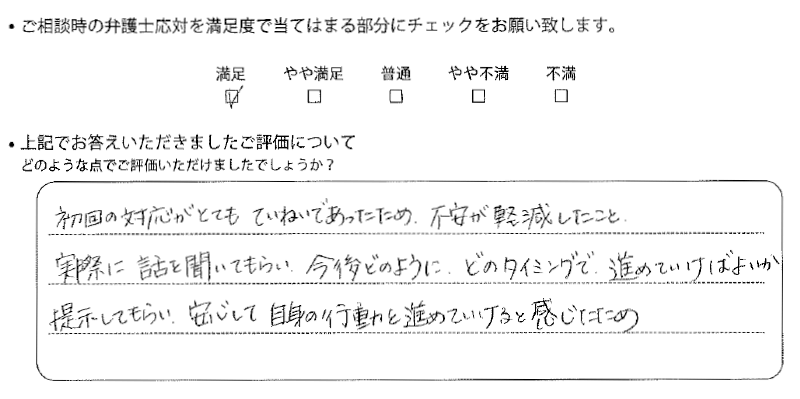 • ご相談時の弁護士応対を満足度で当てはまる部分にチェックをお願い致します。
満足 やや満足 普通 やや不満 不満
☑ □ □ □ □
• 上記でお答えいただきましたご評価について
どのような点でご評価いただけましたでしょうか？
初回の対応がとても ていねいであったため、不安が軽減したこと。
実際に 話を聞いてもらい、今後どのように、どのタイミングで、進めていけばよいか
提示してもらい、安心して 自身の行動を進めていけると感じたため